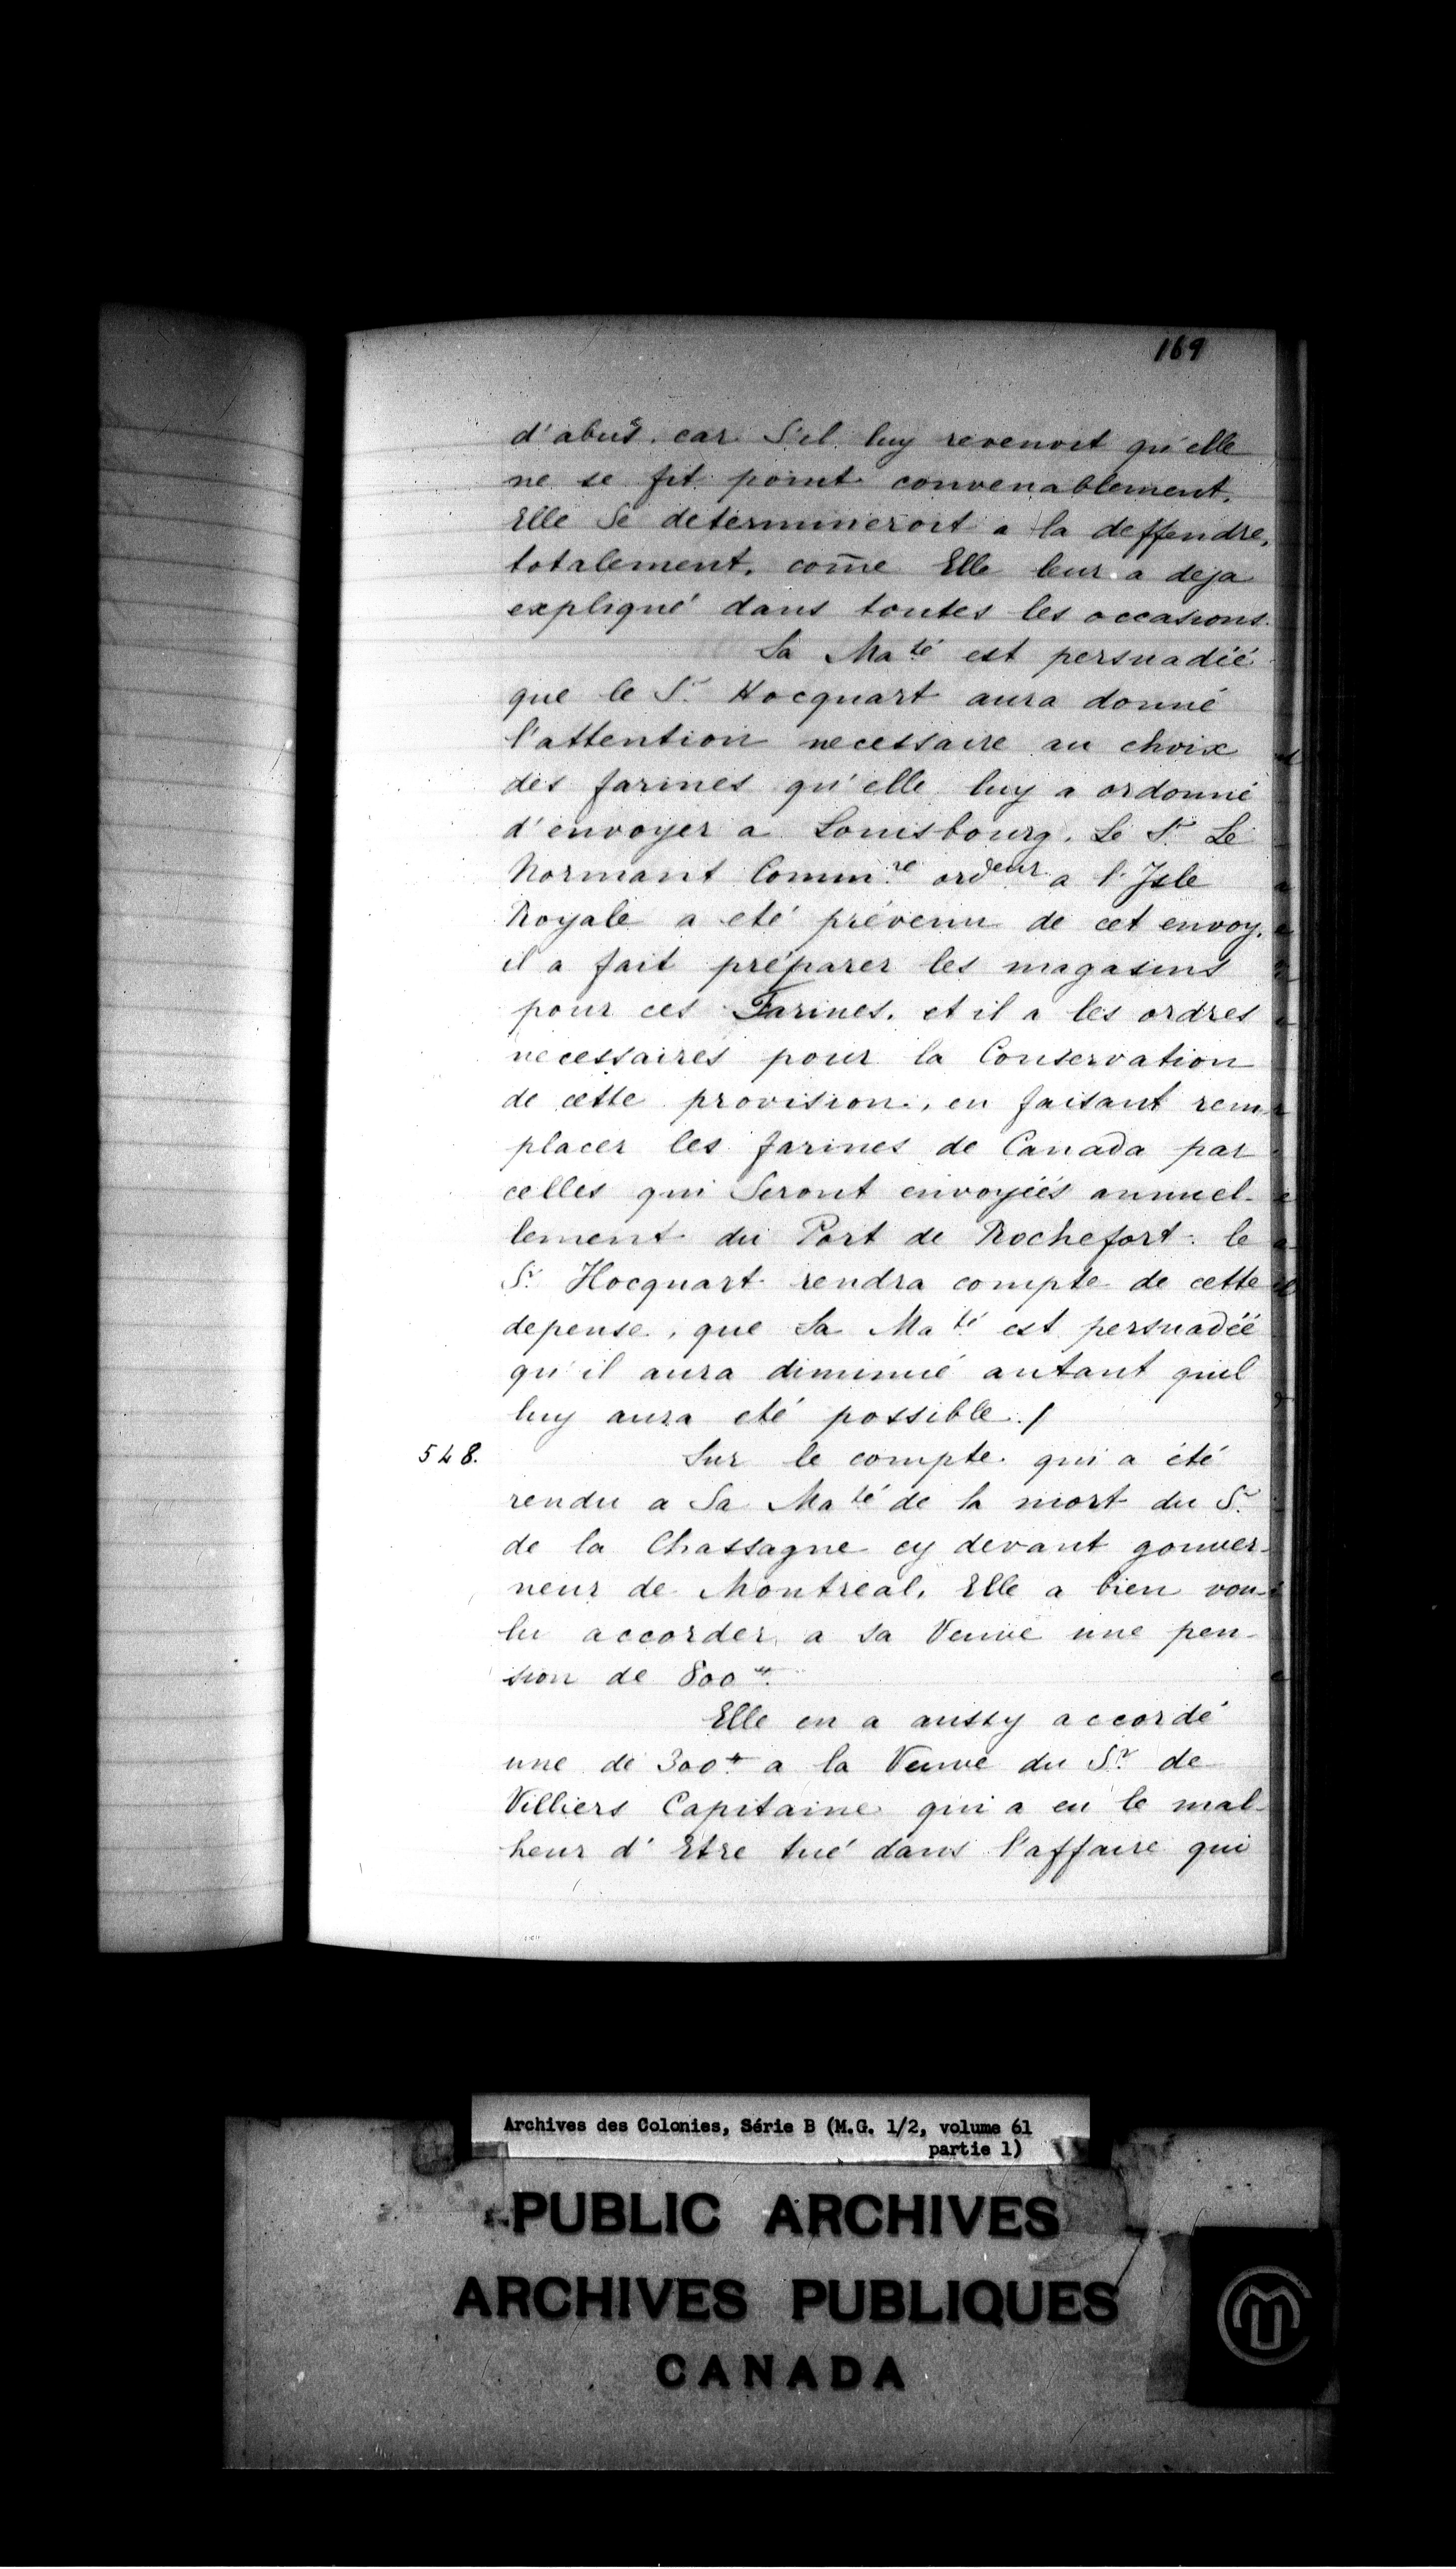 169
d'abus. car S'il luy revenoit qu'elle
ne se fit point convenablement.
Elle Se determineroit a la deffendre,
totalement. com̄e Elle leur a deja
expliqué dans toutes les occasions.
Sa Ma.té est persuadée
que le S.r Hocquart aura donné
l'attention necessaire au choix
des farines qu'elle luy a ordonné
d'envoyer a Louisbourg. Le S.r Le
Normant Comm.re ordeur a l'Isle
Royale a eté prévenu de cet envoy.
il a fait préparer les magasins
pour ces Farines. et il a les ordres
necessaires pour la Conservation
de cette provision, en faisant rem-
placer les farines de Canada par
celles qui Seront envoyées annuel-
lement du Port de Rochefort. le
S.r Hocquart rendra compte de cette
depense, que Sa Ma.té est persuadée
qu'il aura diminué autant quil
luy aura eté possible ./
548. Sur le compte qui a été
rendu a Sa Ma.té de la mort du S.r
de la Chassagne cy devant gouver-
neur de Montreal. Elle a bien vou-
lu accorder a sa Veuve une pen-
sion de 800.tt
Elle en a aussy accordé
une de 300.tt a la Veuve du S.r de
Villiers Capitaine qui a eu le mal-
heur d'Etre tué dans l'affaire qui
Archives des Colonies, Série B (M.G. 1/2, volume 61
partie 1)
PUBLIC ARCHIVES
ARCHIVES PUBLIQUES
CANADA